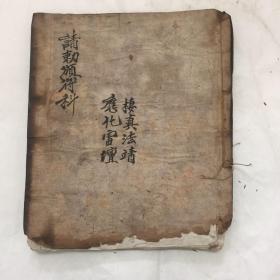 請勅頒符科
接真法靖
應化雷壇